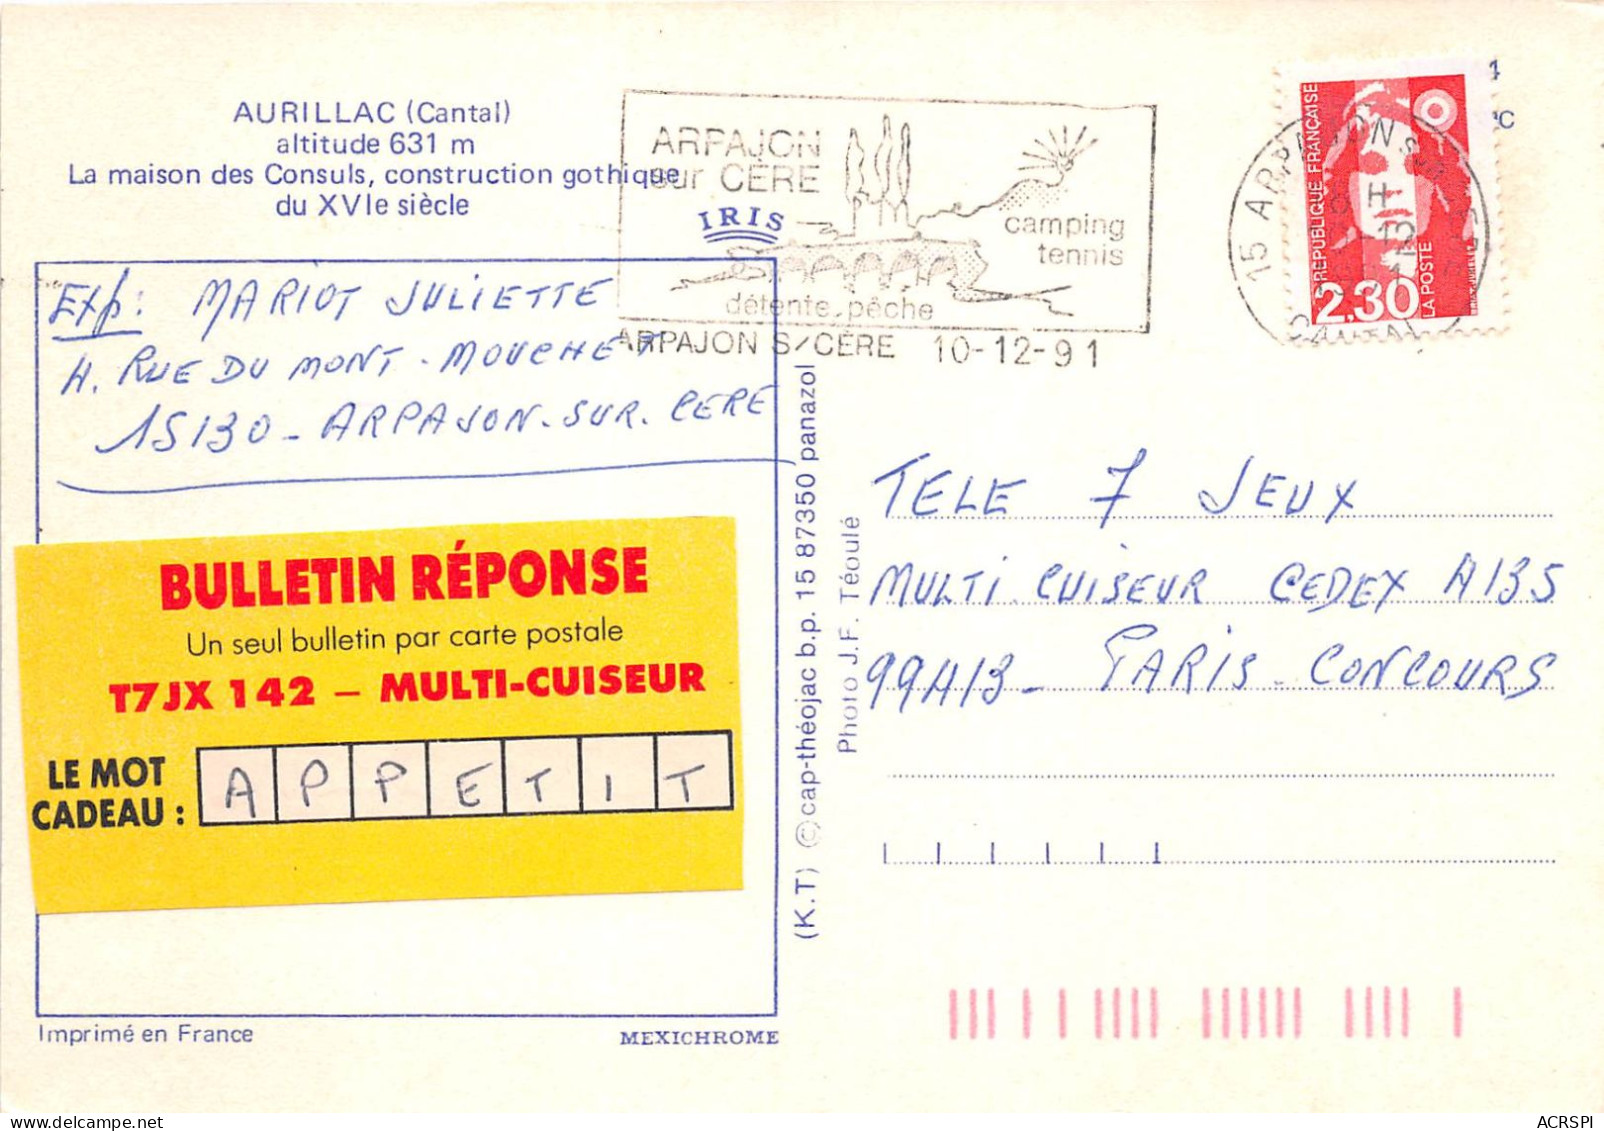 AURILLAC (Cantal)
altitude 631 m
La maison des Consuls, construction gothique
du XVIe siècle
IRIS
ARPAJON
sur CÈRE
camping
tennis
détente pêche
ARPAJON S/CÈRE 10-12-91
15 ARPAJON SUR
CANTAL
REPUBLIQUE FRANÇAISE
2.30
LA POSTE
Exp: MARIOT JULIETTE
4. RUE DU MONT-MOUCHET
15130 - ARPAJON-SUR-CERE
BULLETIN RÉPONSE
Un seul bulletin par carte postale
T7JX 142 – MULTI-CUISEUR
LE MOT
CADEAU : APPETIT
(K.T) © cap-théojac b.p. 15 87350 panazol
Photo J.F. Téoulé
TELE 7 JEUX
MULTI CUISEUR CEDEX A135
99413 - PARIS-CONCOURS
Imprimé en France
MEXICHROME
ACRSPI